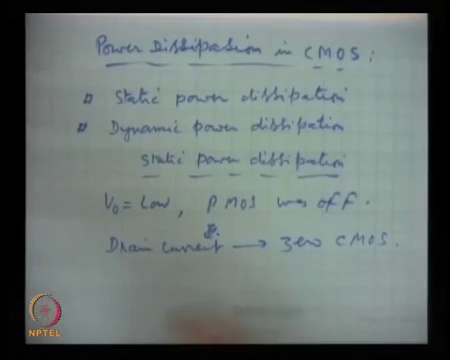 Power Dissipation in CMOS:
Static power dissipation
Dynamic power dissipation
static power dissipation
V0 = Low, PMOS was off.
Drain current → zero CMOS.
NPTEL